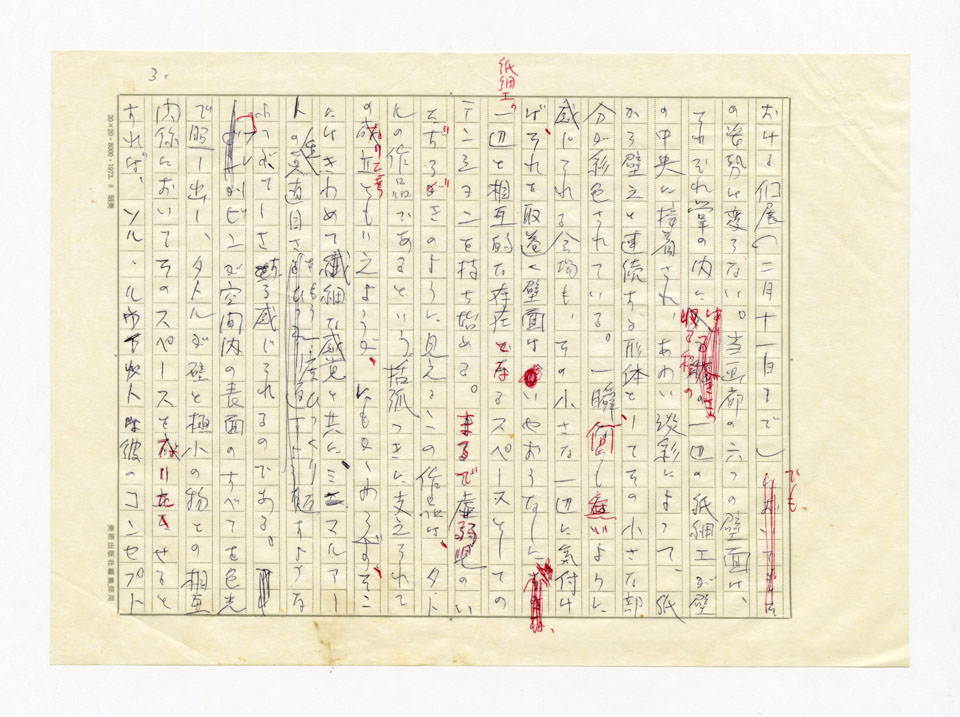 3.
おける個展(二月十一日まで)でも
の姿勢は変らない。当画廊の六つの壁面は、
それぞれ掌の内に収る程の一辺の紙細工が壁
の中央に接着され、あわい淡彩によって、紙
から壁えと連続する形体としてその小さな部
分が彩色されている。一瞬、何も無いように
感じられる会場も、その小さな一辺に気付け
ばそれを取巻く壁面はいやおうなしに
紙細工の
一辺と相互的な存在となるスペースとしての
テンションを持ち始める。まるで虚弱児のい
たずらがきのように見えるこの作品は、タト
ルの作品であるという括弧つきに支えられて
の成立ともいえようが、にもかかわらずそこ
なりて
にはきわめて繊細な感覚と共に、ミニマルアー
トの生真面目さをもう一度ひっくり返すような
感じられるのである。
フレイヴィンが空間内の表面のすべてを色光
で照し出し、タトルが壁と極小の物との相互
関係においてそのスペースを成り立たせると
すれば、ソル・ルウィットは彼のコンセプト
20×20